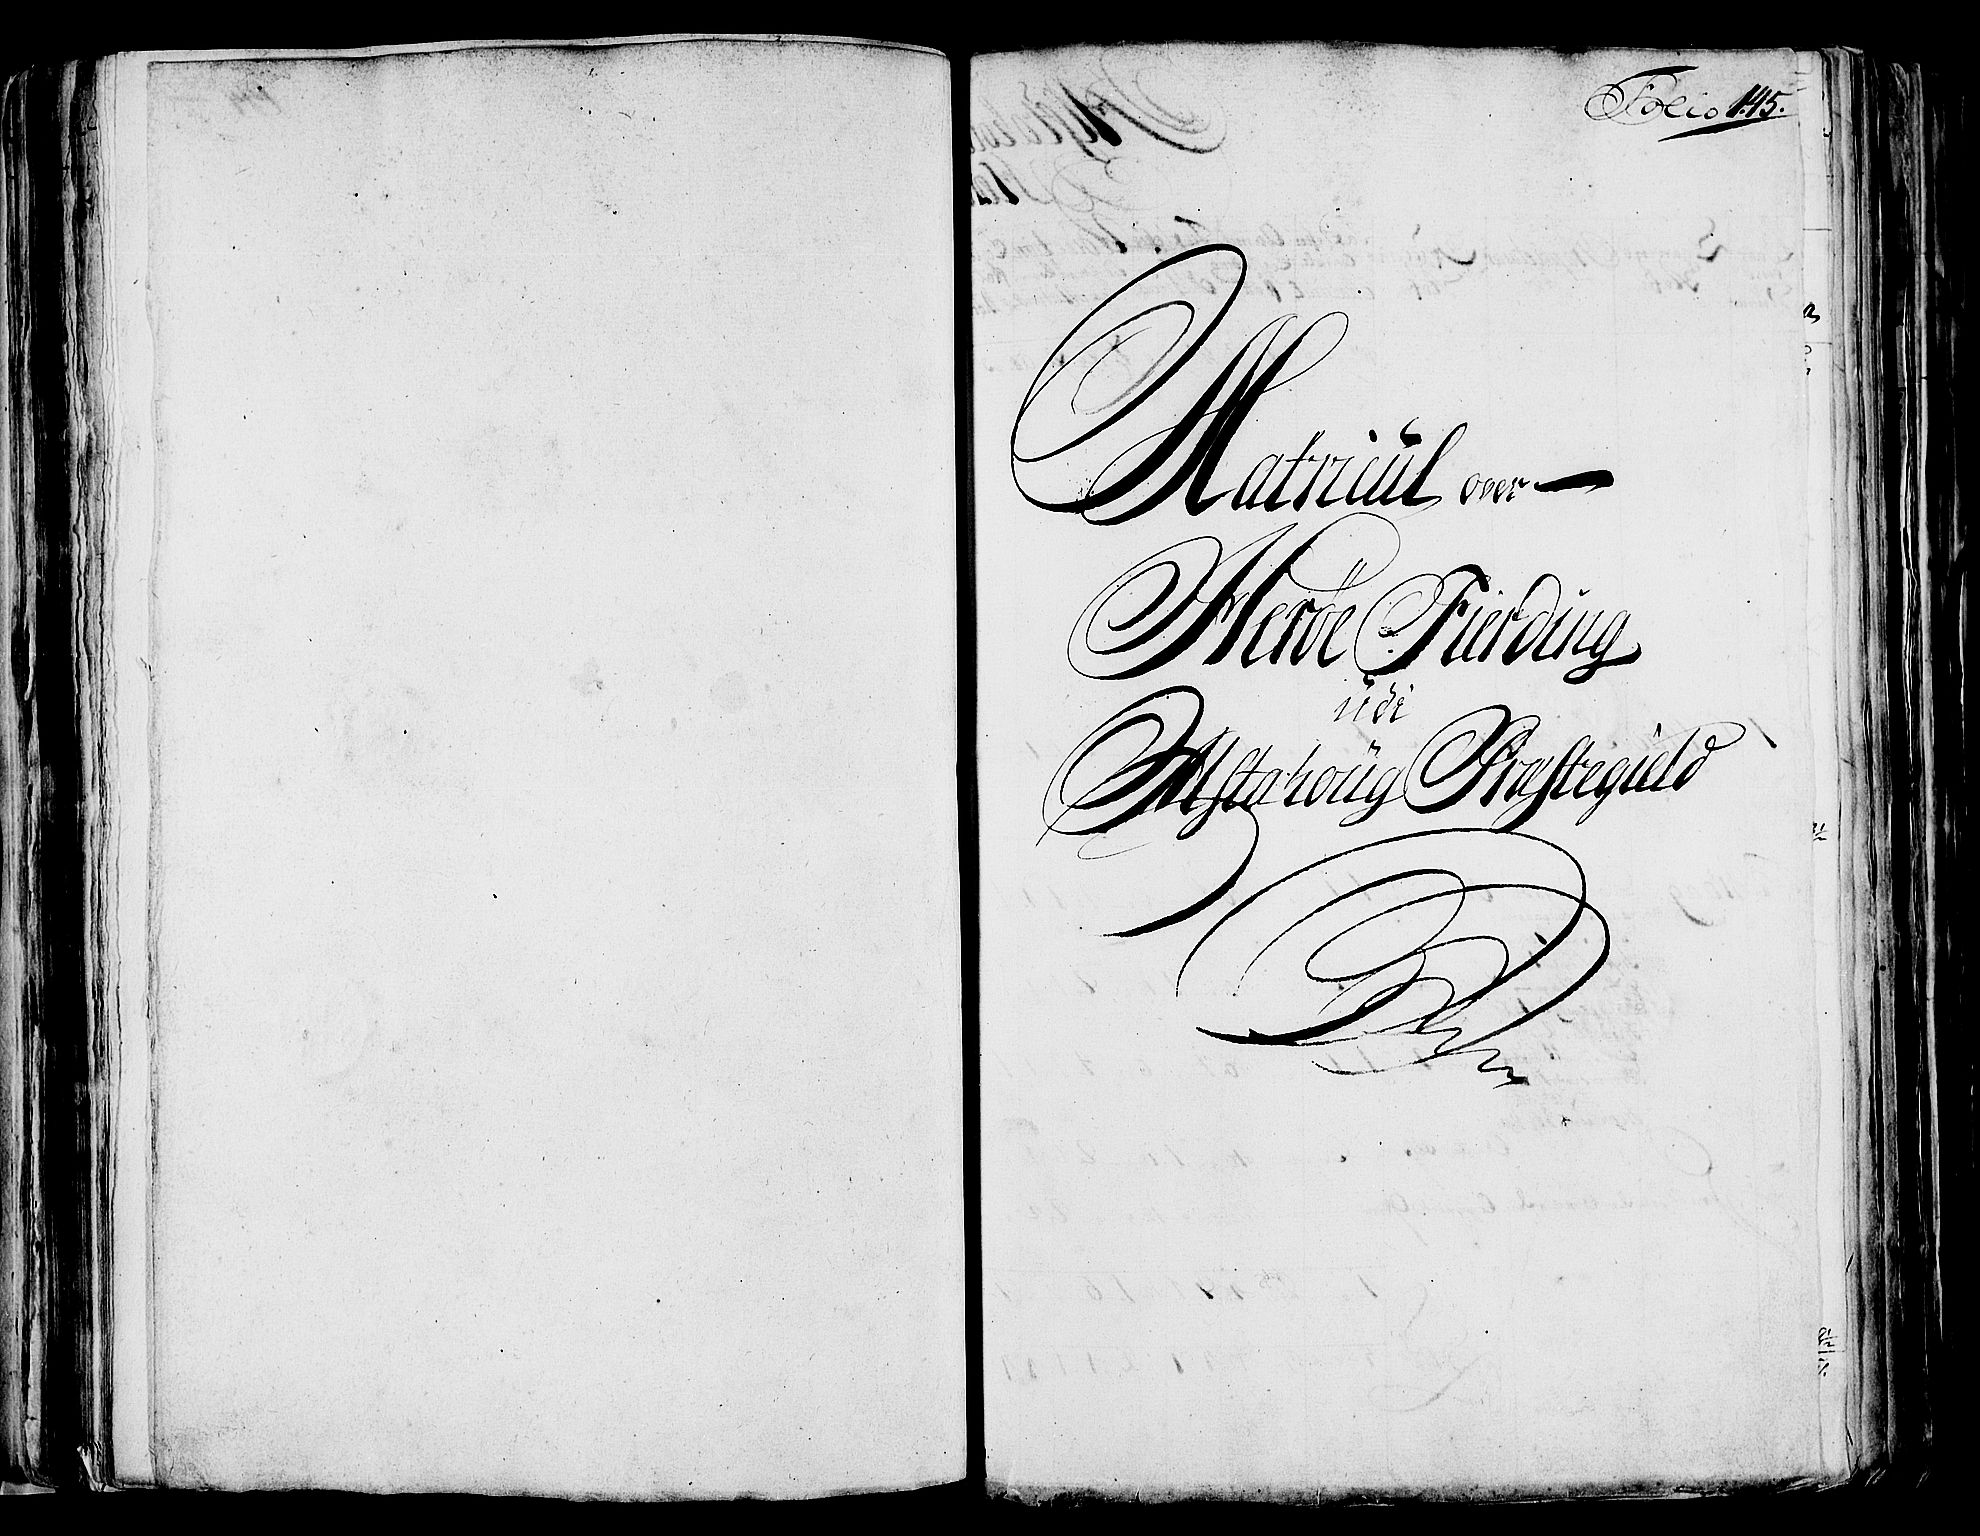 Folio 145.
Matricul over
Herøe Fierding
udi
Alstahoug Præstegield